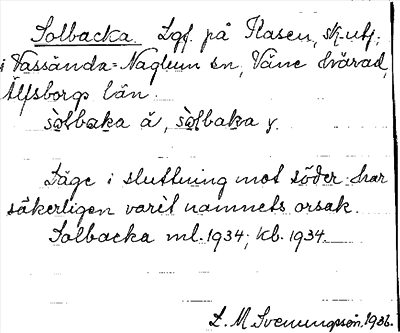 Solbacka. Lgf. på Hasen, sk. utf.
i Vassända=Naglum sn, Väne härad,
Älfsborgs län.
sòlbaka å, sòlbaka y.
Läge i sluttning mot söder har
säkerligen varit namnets orsak.
Solbacka ml. 1934; kb. 1934.
L. M. Svenungsson. 1936.